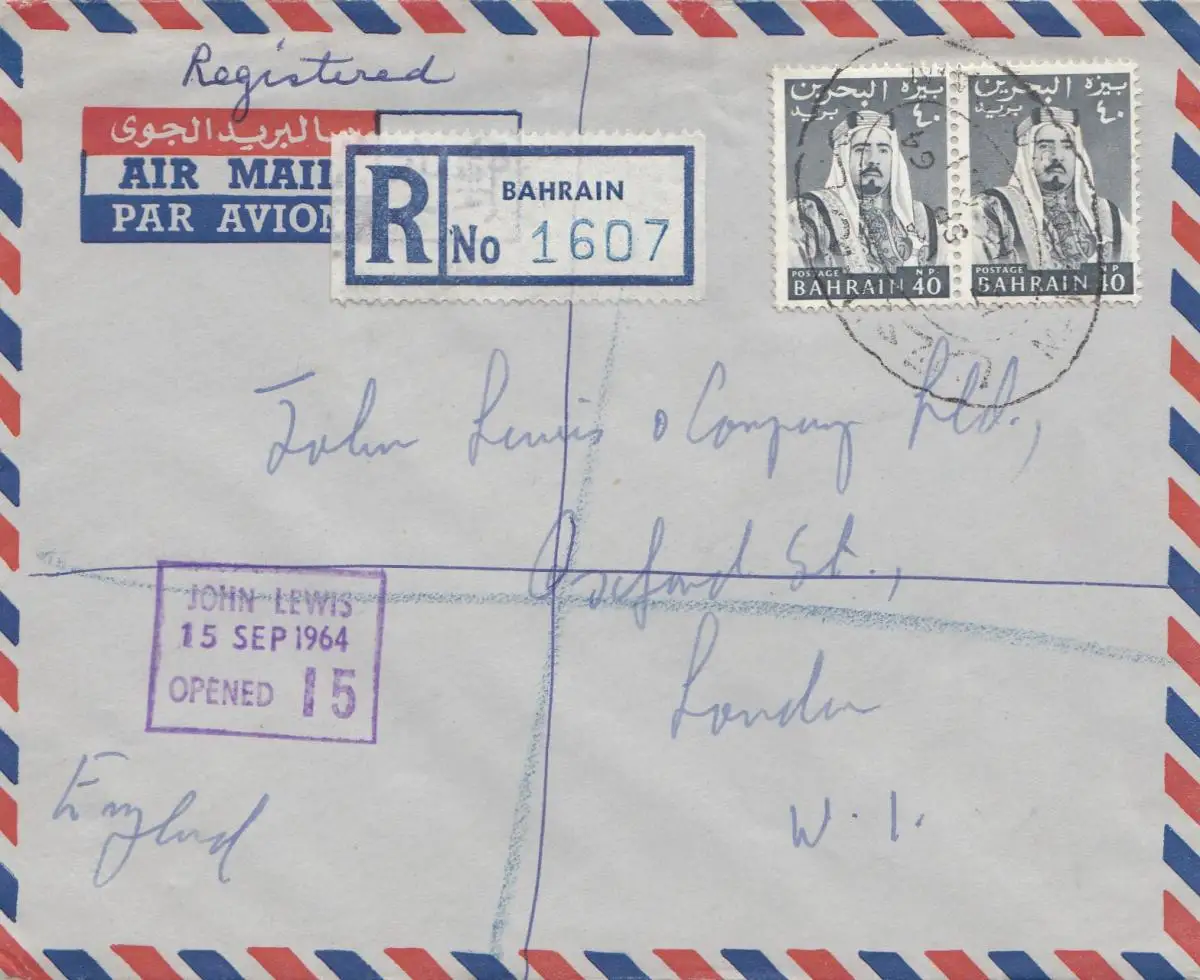 Registered
بالبريد الجوى
AIR MAIL
PAR AVION
R
BAHRAIN
No 1607
بيزه البحرين
بريد ٤٠
POSTAGE N P
BAHRAIN 40
بيزه البحرين
بريد ٤٠
POSTAGE N P
BAHRAIN 40
John Lewis & Company Ltd.,
Oxford St.,
London
W. 1.
England
JOHN LEWIS
15 SEP 1964
OPENED 15